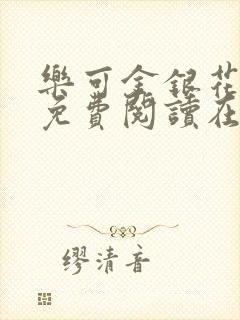 樂可金銀花
免費閱讀在
缪清音